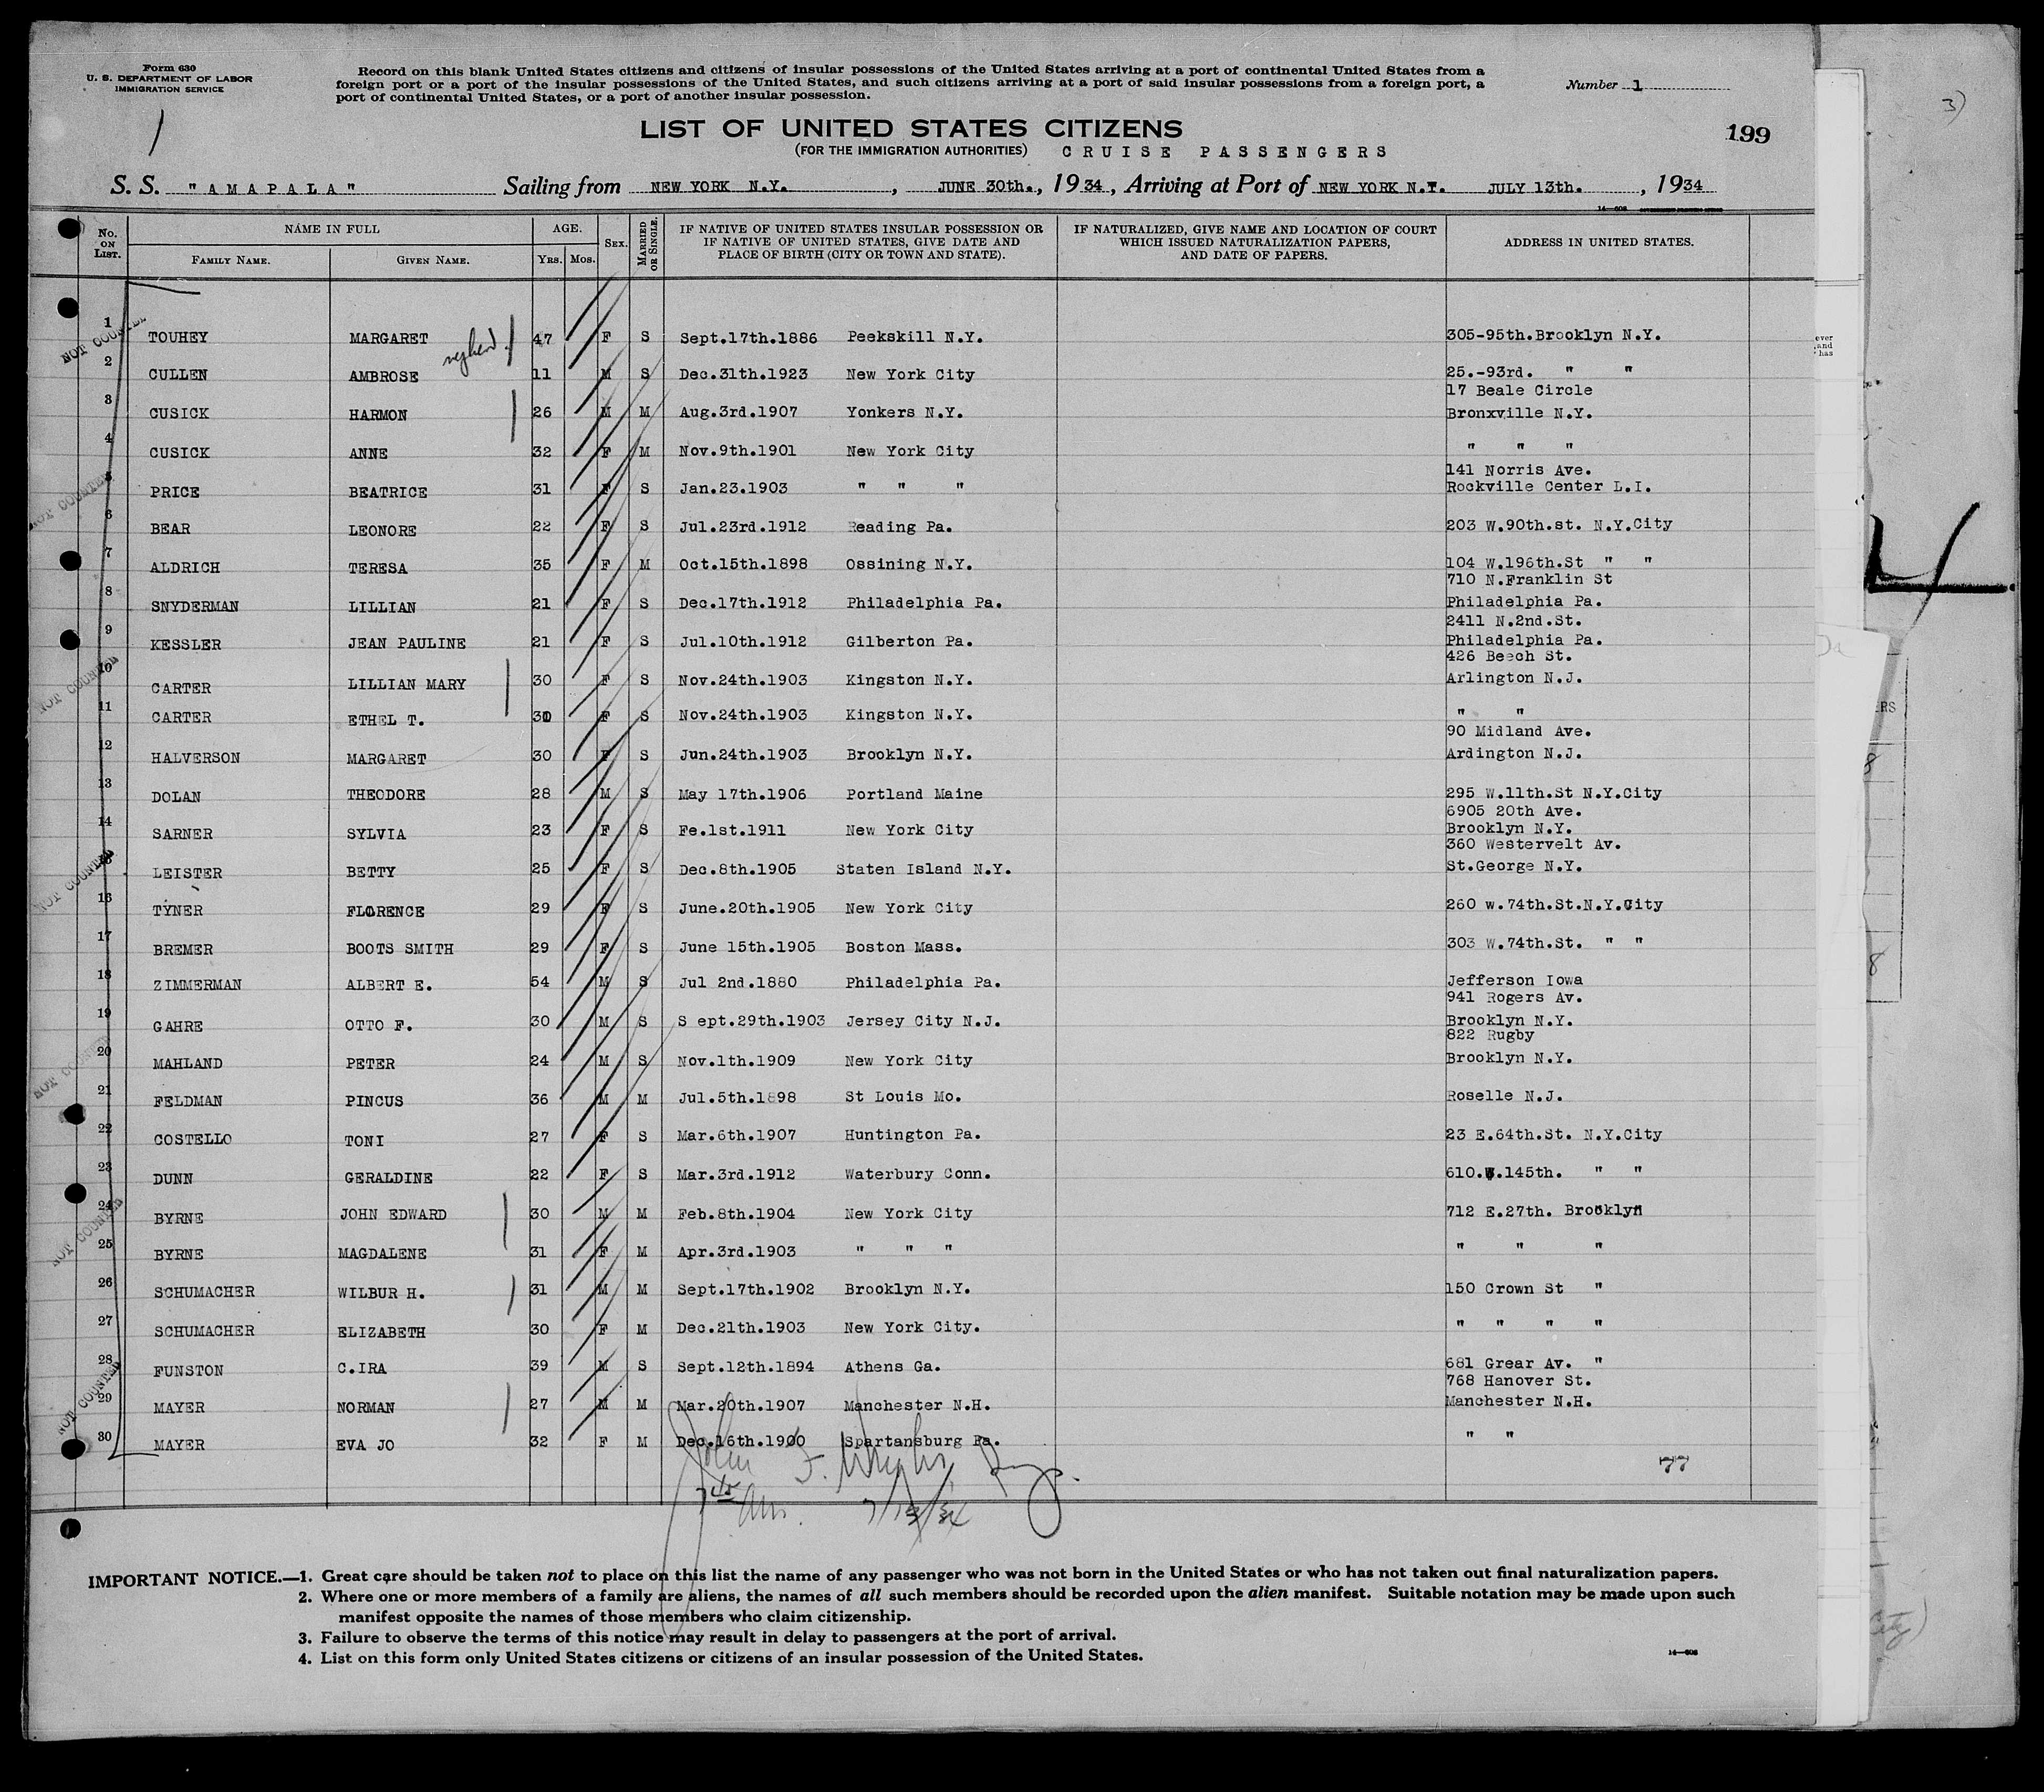 Form 630
U. S. DEPARTMENT OF LABOR
IMMIGRATION SERVICE
Record on this blank United States citizens and citizens of insular possessions of the United States arriving at a port of continental United States from a
foreign port or a port of the insular possessions of the United States, and such citizens arriving at a port of said insular possessions from a foreign port, a
port of continental United States, or a port of another insular possession.
Number 1
3)
LIST OF UNITED STATES CITIZENS
199
(FOR THE IMMIGRATION AUTHORITIES) CRUISE PASSENGERS
S. S. "AMAPALA" Sailing from NEW YORK N.Y., JUNE 30th., 1934, Arriving at Port of NEW YORK N.Y. JULY 13th., 1934
14—608
No. ON LIST. NAME IN FULL AGE. SEX. MARRIED OR SINGLE. IF NATIVE OF UNITED STATES INSULAR POSSESSION OR IF NATIVE OF UNITED STATES, GIVE DATE AND PLACE OF BIRTH (CITY OR TOWN AND STATE). IF NATURALIZED, GIVE NAME AND LOCATION OF COURT WHICH ISSUED NATURALIZATION PAPERS, AND DATE OF PAPERS. ADDRESS IN UNITED STATES.
FAMILY NAME. GIVEN NAME. YRS. MOS.
1 TOUHEY MARGARET 47 F S Sept.17th.1886 Peekskill N.Y. 305-95th.Brooklyn N.Y.
NOT COUNTED
2 CULLEN AMBROSE 11 M S Dec.31th.1923 New York City 25.-93rd. " "
17 Beale Circle
3 CUSICK HARMON 26 M M Aug.3rd.1907 Yonkers N.Y. Bronxville N.Y.
4 CUSICK ANNE 32 F M Nov.9th.1901 New York City " " "
141 Norris Ave.
5 PRICE BEATRICE 31 F S Jan.23.1903 " " " Rockville Center L.I.
NOT COUNTED
6 BEAR LEONORE 22 F S Jul.23rd.1912 Reading Pa. 203 W.90th.st. N.Y.City
7 ALDRICH TERESA 35 F M Oct.15th.1898 Ossining N.Y. 104 W.196th.St " "
710 N.Franklin St
8 SNYDERMAN LILLIAN 21 F S Dec.17th.1912 Philadelphia Pa. Philadelphia Pa.
2411 N.2nd.St.
9 KESSLER JEAN PAULINE 21 F S Jul.10th.1912 Gilberton Pa. Philadelphia Pa.
426 Beech St.
10 CARTER LILLIAN MARY 30 F S Nov.24th.1903 Kingston N.Y. Arlington N.J.
NOT COUNTED
11 CARTER ETHEL T. 30 F S Nov.24th.1903 Kingston N.Y. " "
90 Midland Ave.
12 HALVERSON MARGARET 30 F S Jun.24th.1903 Brooklyn N.Y. Ardington N.J.
13 DOLAN THEODORE 28 M S May 17th.1906 Portland Maine 295 W.11th.St N.Y.City
6905 20th Ave.
14 SARNER SYLVIA 23 F S Fe.1st.1911 New York City Brooklyn N.Y.
360 Westervelt Av.
15 LEISTER BETTY 25 F S Dec.8th.1905 Staten Island N.Y. St.George N.Y.
NOT COUNTED
16 TYNER FLORENCE 29 F S June.20th.1905 New York City 260 w.74th.St.N.Y.City
17 BREMER BOOTS SMITH 29 F S June 15th.1905 Boston Mass. 303 W.74th.St. " "
18 ZIMMERMAN ALBERT E. 54 M S Jul 2nd.1880 Philadelphia Pa. Jefferson Iowa
941 Rogers Av.
19 GAHRE OTTO F. 30 M S S ept.29th.1903 Jersey City N.J. Brooklyn N.Y.
822 Rugby
20 MAHLAND PETER 24 M S Nov.1th.1909 New York City Brooklyn N.Y.
NOT COUNTED
21 FELDMAN PINCUS 36 M M Jul.5th.1898 St Louis Mo. Roselle N.J.
22 COSTELLO TONI 27 F S Mar.6th.1907 Huntington Pa. 23 E.64th.St. N.Y.City
23 DUNN GERALDINE 22 F S Mar.3rd.1912 Waterbury Conn. 610.W.145th. " "
24 BYRNE JOHN EDWARD 30 M M Feb.8th.1904 New York City 712 E.27th. Brooklyn
NOT COUNTED
25 BYRNE MAGDALENE 31 F M Apr.3rd.1903 " " " " " "
26 SCHUMACHER WILBUR H. 31 M M Sept.17th.1902 Brooklyn N.Y. 150 Crown St "
27 SCHUMACHER ELIZABETH 30 F M Dec.21th.1903 New York City. " " " "
28 FUNSTON C.IRA 39 M S Sept.12th.1894 Athens Ga. 681 Grear Av. "
768 Hanover St.
29 MAYER NORMAN 27 M M Mar.20th.1907 Manchester N.H. Manchester N.H.
NOT COUNTED
30 MAYER EVA JO 32 F M Dec.16th.1900 Spartansburg Pa. " "
77
John F.
7/13/34
IMPORTANT NOTICE.—1. Great care should be taken not to place on this list the name of any passenger who was not born in the United States or who has not taken out final naturalization papers.
2. Where one or more members of a family are aliens, the names of all such members should be recorded upon the alien manifest. Suitable notation may be made upon such
manifest opposite the names of those members who claim citizenship.
3. Failure to observe the terms of this notice may result in delay to passengers at the port of arrival.
4. List on this form only United States citizens or citizens of an insular possession of the United States.
14—608